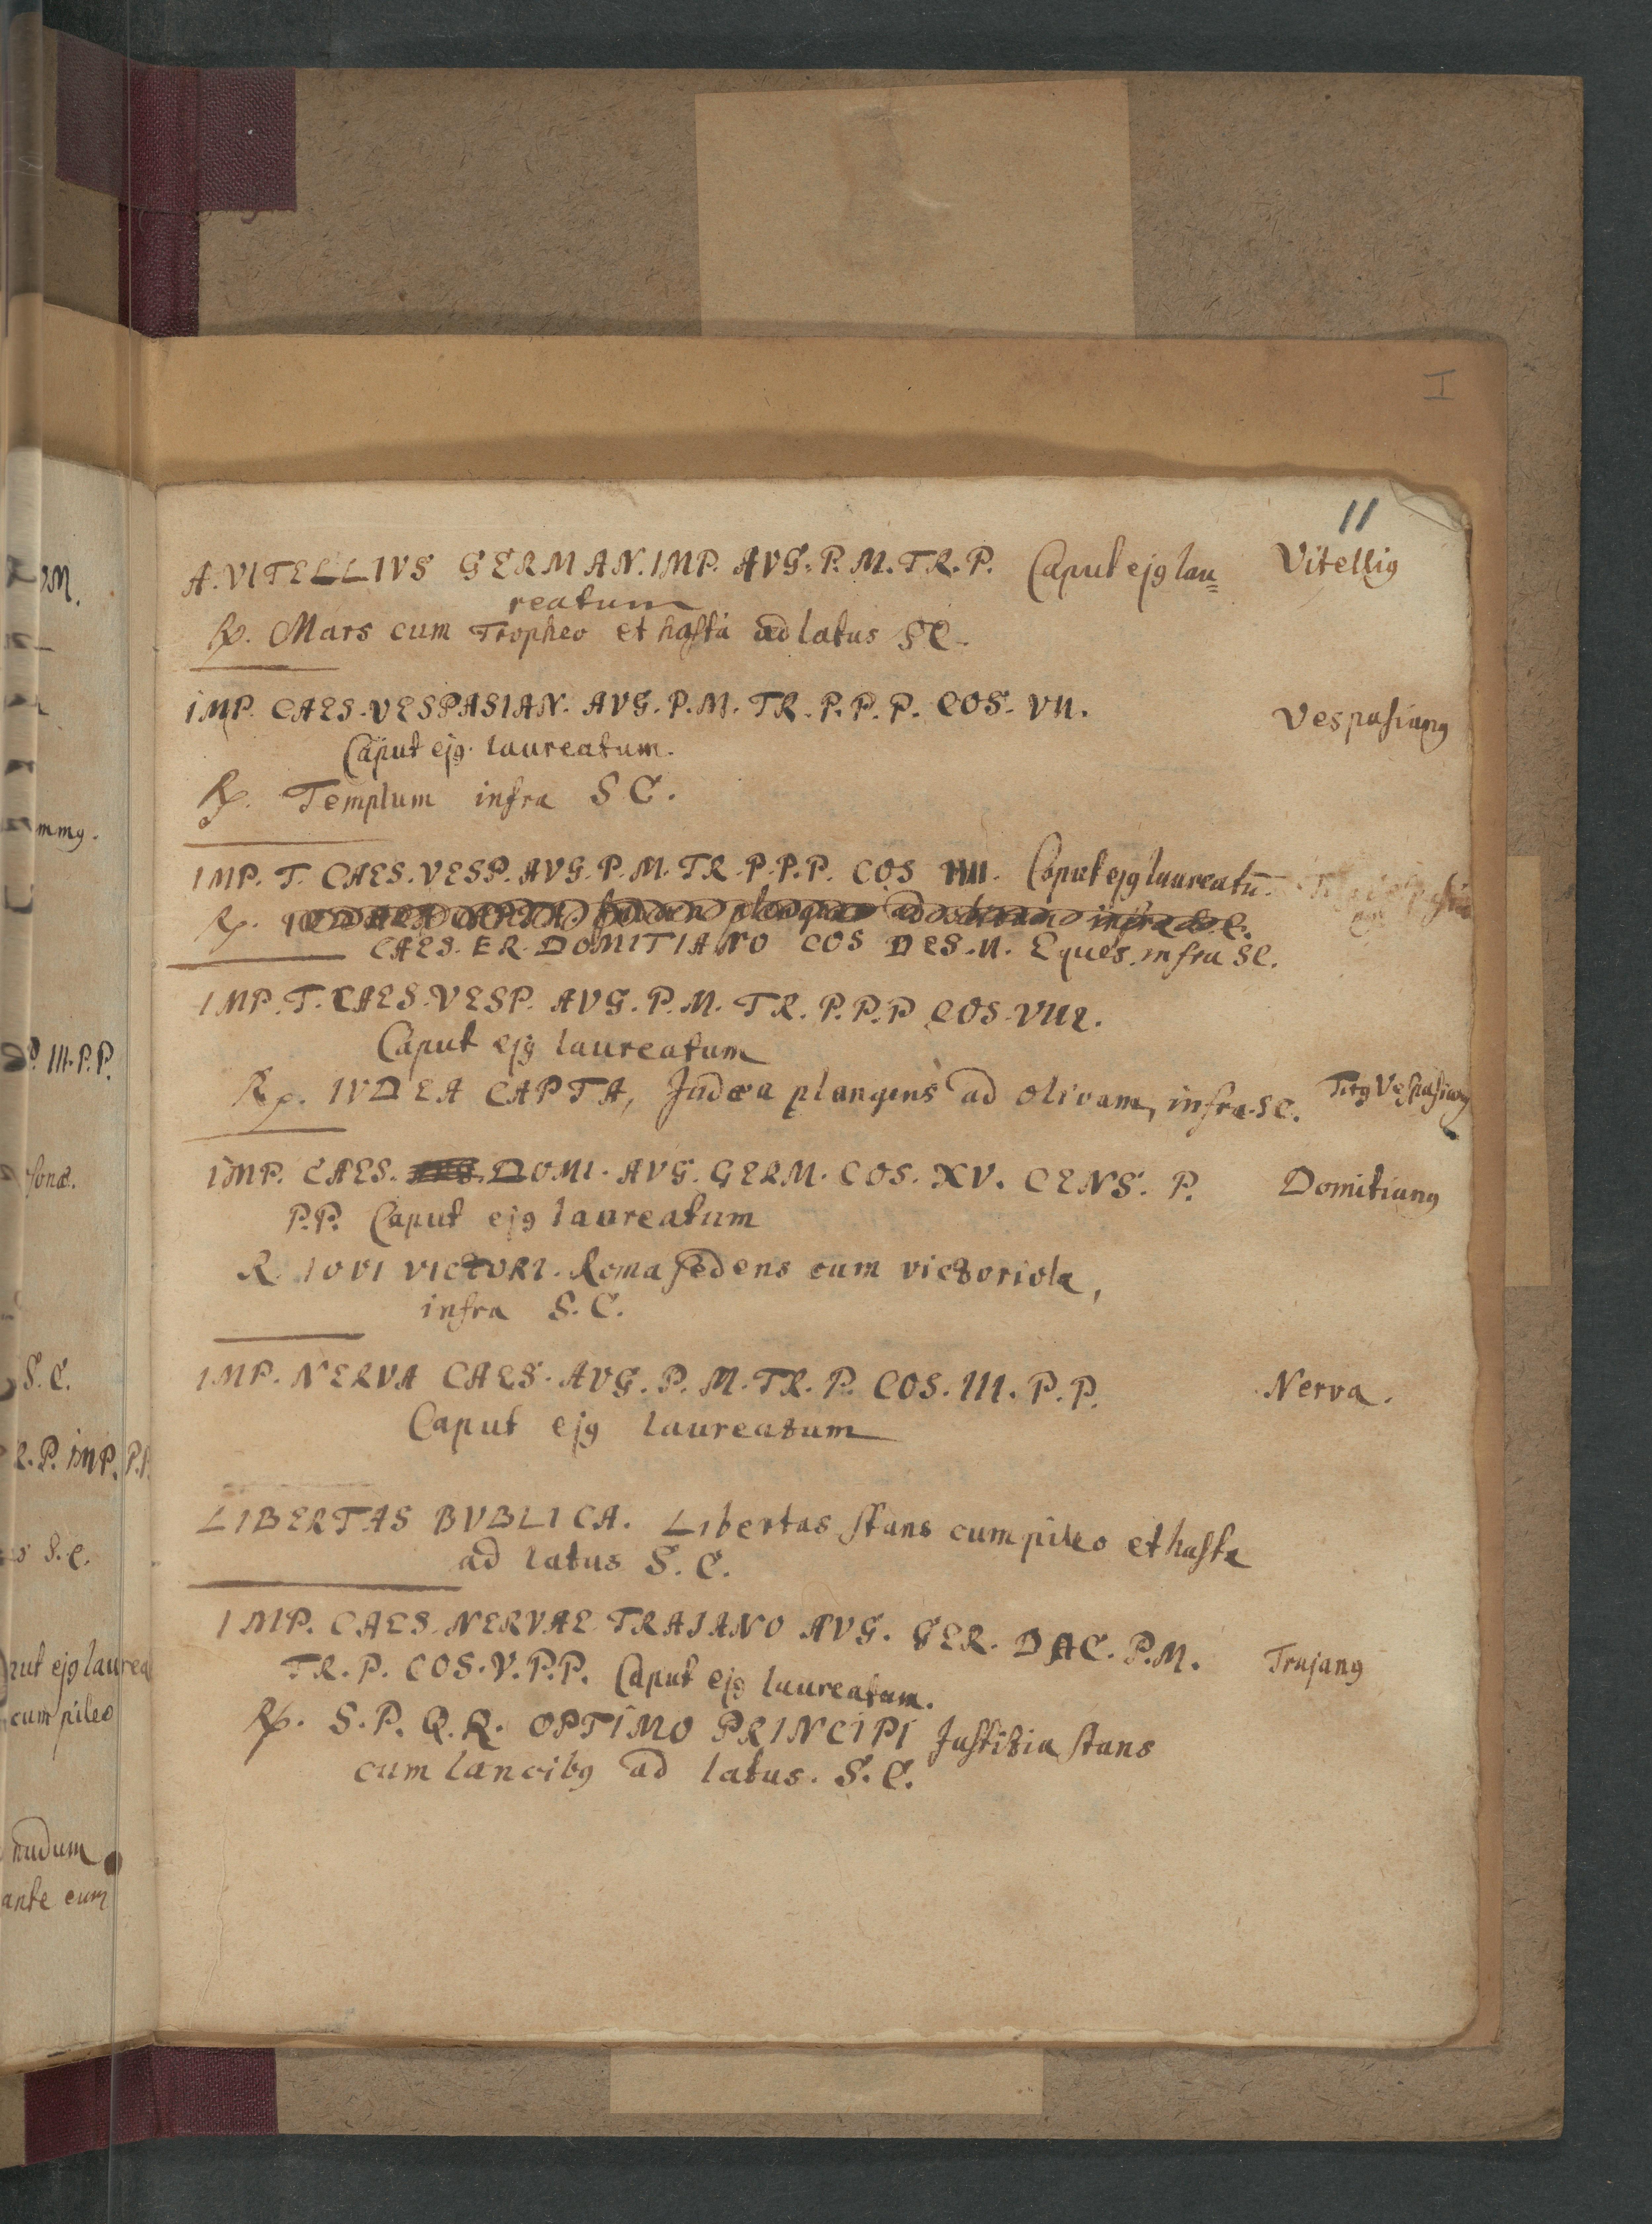 I
11
A. VITELLIVS GERMAN. IMP. AVG. P. M. TR. P. Caput ejꝯ lau= Vitelliꝯ
reatum
℞. Mars cum Tropheo et hasta ad latus SC.
IMP. CAES. VESPASIAN. AVG. P. M. TR. P. P. P. COS. VII. Vespasianꝯ
Caput ejꝯ laureatum.
℞. Templum infra S C.
IMP. T. CAES. VESP. AVG. P. M. TR. P. P. P. COS IIII. Caput ejꝯ laureatū.
℞.
CAES. ER. DOMITIANO COS DES. II. Eques infra SC.
IMP. T. CAES. VESP. AVG. P. M. TR. P. P. P COS. VIII.
Caput ejꝯ laureatum
℞. IVDEA CAPTA, Judæa plangens ad olivam, infra SC. Titꝯ Vespasianꝯ
IMP. CAES. DOMI. AVG. GERM. COS. XV. CENS. P. Domitianꝯ
P.P. Caput ejꝯ laureatum
R. IOVI VICTORI. Roma sedens cum victoriola,
infra S. C.
IMP. NERVA CAES. AVG. P. M. TR. P. COS. III. P. P. Nerva.
Caput ejꝯ laureatum
LIBERTAS BVBLICA. Libertas stans cum pileo et hasta
ad latus S. C.
IMP. CAES. NERVAE TRAIANO AVG. GER. DAC. P. M. Trajanꝯ
TR. P. COS. V. P. P. Caput ejꝯ laureatum.
℞. S. P. Q. R. OPTIMO PRINCIPI Justitia stans
cum lancibꝯ ad latus. S. C.